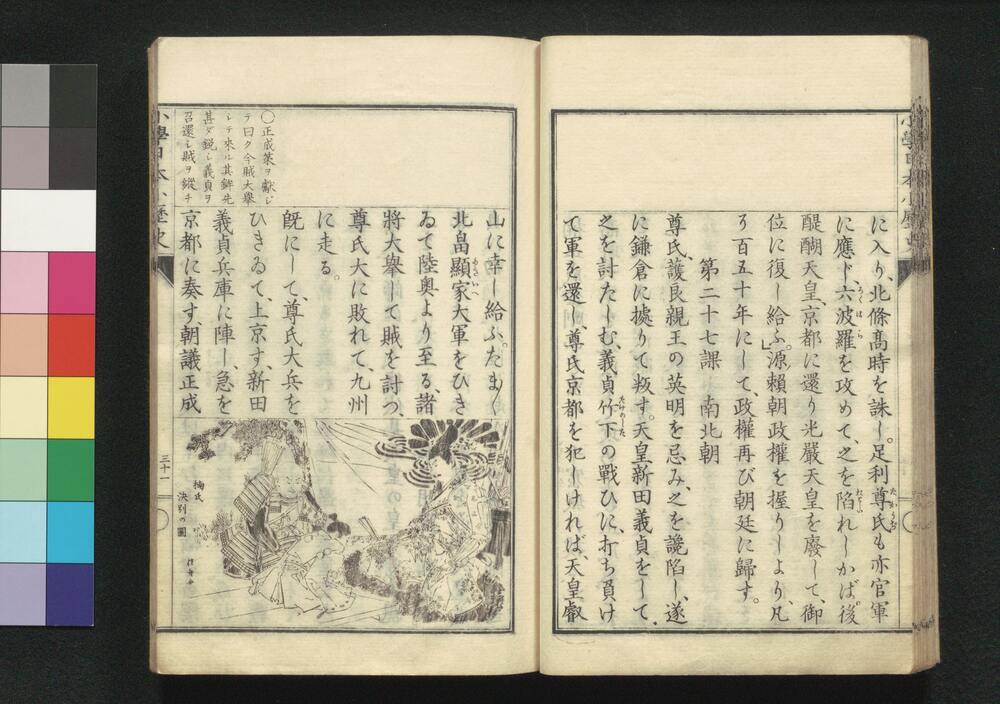 に入り、北條髙時を誅し。足利尊氏も亦官軍
に應ド六波羅を攻めて、之を陷れしかば。後
醍醐天皇、京都に還り光嚴天皇を廢して、御
位に復し給ふ。」源頼朝政權を握りしより、凡
そ百五十年にして、政權再び朝廷に歸す。
第二十七課 南北朝
尊氏、護良親王の英明を忌み、之を讒陷し、遂
に鎌倉に據りて叛す。天皇新田義貞をして、
之を討たしむ、義貞竹下の戰ひに、打ち負け
て軍を還し、尊氏京都を犯しければ、天皇叡
小學日本小歴史
山に幸し給ふ。たま〱
北畠顯家大軍をひき
ゐて陸奥より至る、諸
將大擧して賊を討つ、
尊氏大に敗れて、九州
に走る。
旣にして、尊氏大兵を
ひきゐて、上京す、新田
義貞兵庫に陣し、急を
京都に奏す、朝議正成
〇正成策ヲ獻シ
テ曰ク今賊大擧
シテ來ル其鋒先
甚ダ鋭シ義貞ヲ
召還シ賊ヲ縱チ
楠氏
決別の圖
小學日本小歴史
三十一